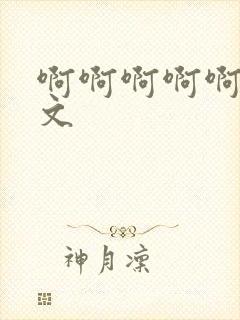 啊啊啊啊啊
文
神月凜